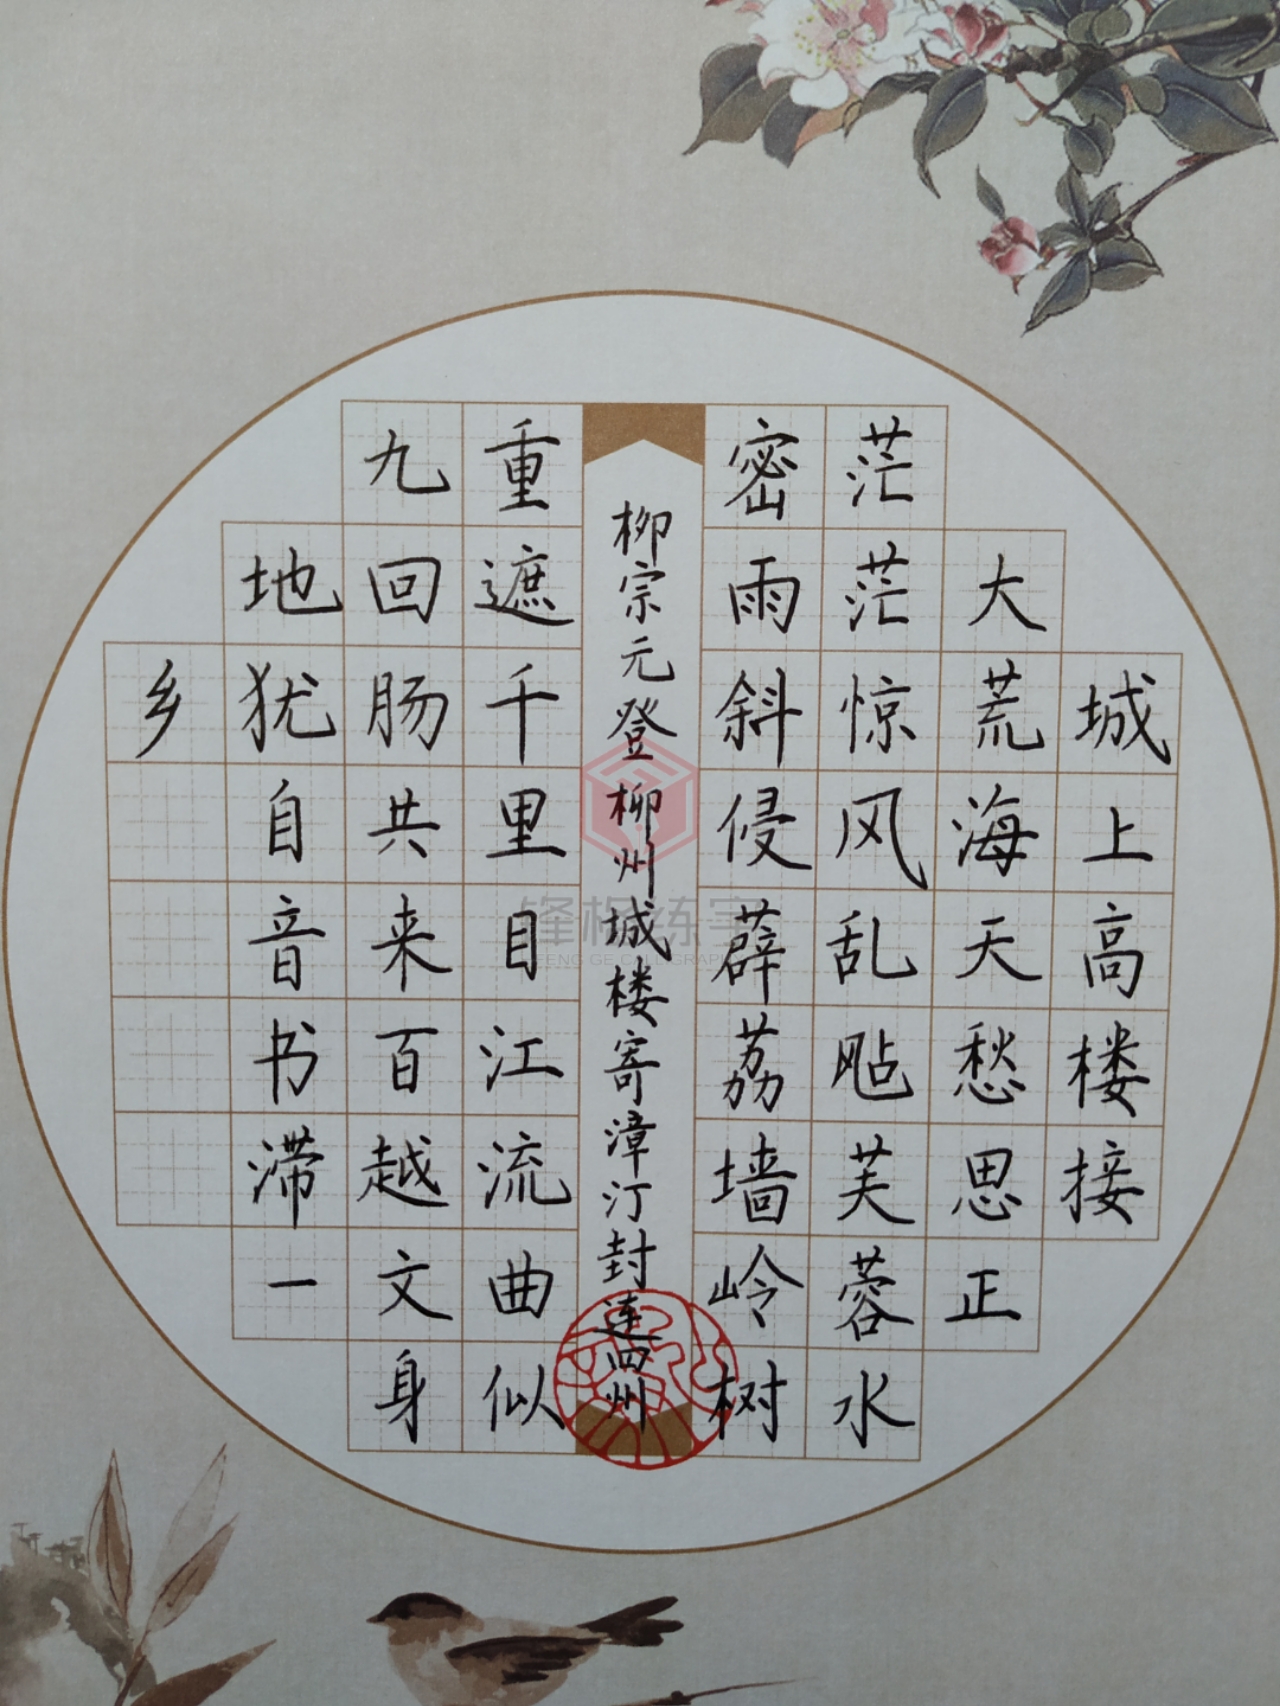 城上高楼接
大荒海天愁思正
茫茫惊风乱飐芙蓉水
密雨斜侵薜荔墙岭树
柳宗元登柳州城楼寄漳汀封连四州
重遮千里目江流曲似
九回肠共来百越文身
地犹自音书滞一
乡
锋格练字
FENG GE CALLIGRAPHY